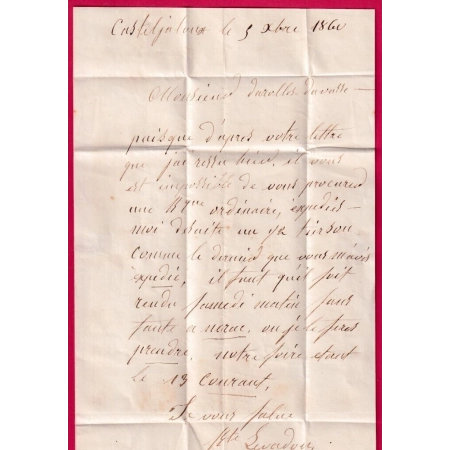 Casteljaloux le 5 xbre 1860
Monsieur
puisque d'apres votre lettre
que j'ai ressu hier, il vous
est impossible de vous procurer
une Bque ordinaire, expédiés-
moi de suite un 1/2 tierson
comme le dernier que vous m'avés
expédié, il faut qu'il soit
rendu samedi matin sans
faute a nerac, ou je le feres
prendre, notre foire etant
le 13 courant,
Je vous salue